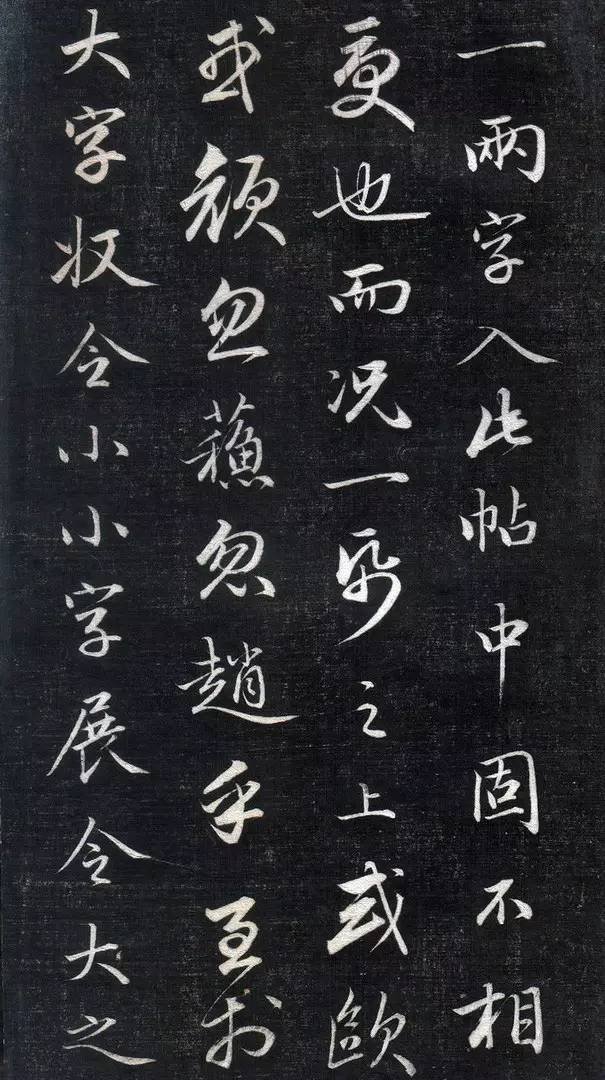 一兩字入此帖中固不相
受也而况一帋之上或歐
或顔忽蘓忽趙乎至於
大字收令小小字展令大之